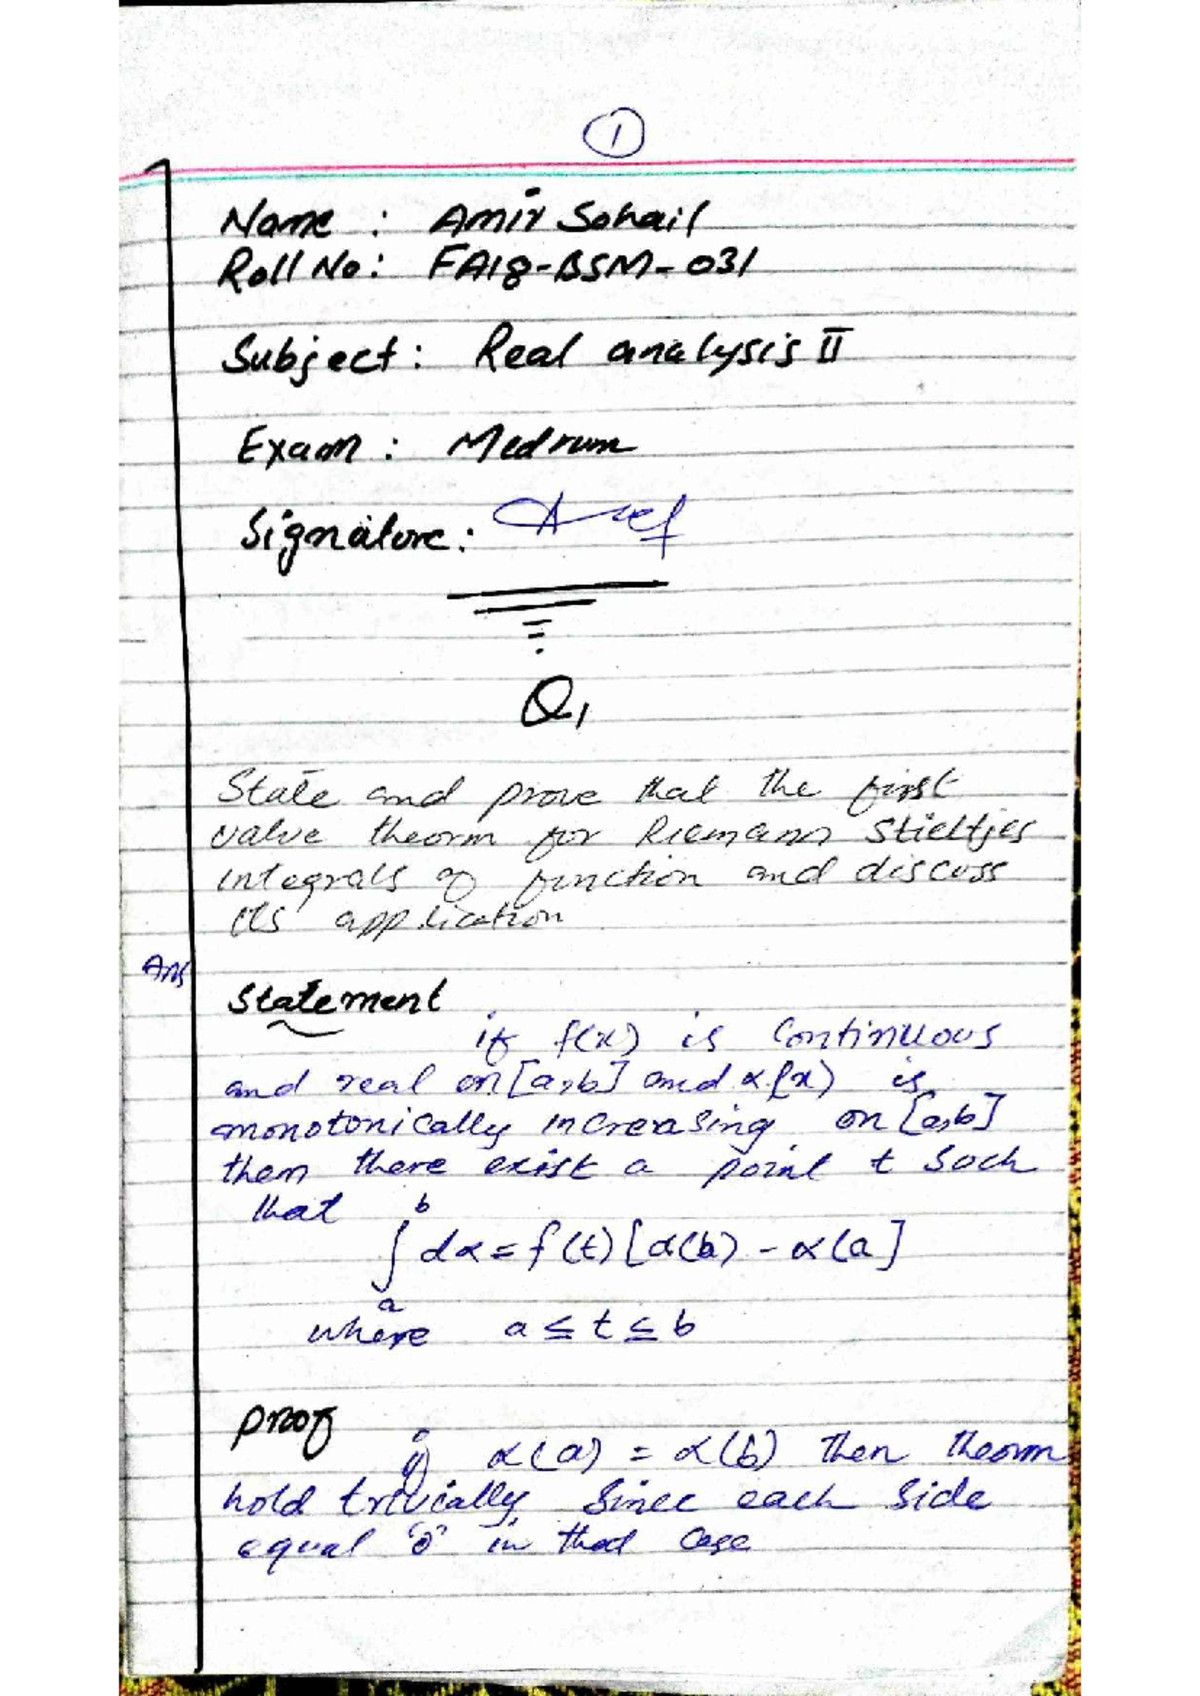 1
Name : Amir Sohail
Roll No: FA18-BSM-031
Subject: Real analysis II
Exam : Medrum
Signature:
Q1
State and prove that the first
value theorm for Riemann Stieltjes
integrals of function and discuss
its application
Ans
Statement
if f(x) is Continuous
and real on [a,b] and α(x) is
monotonically increasing on [a,b]
then there exist a point t such
that
∫_a^b dα = f(t)[α(b) - α(a]
where a ≤ t ≤ b
Proof
if α(a) = α(b) then theorm
hold trivially, Since each side
equal "0" in that case